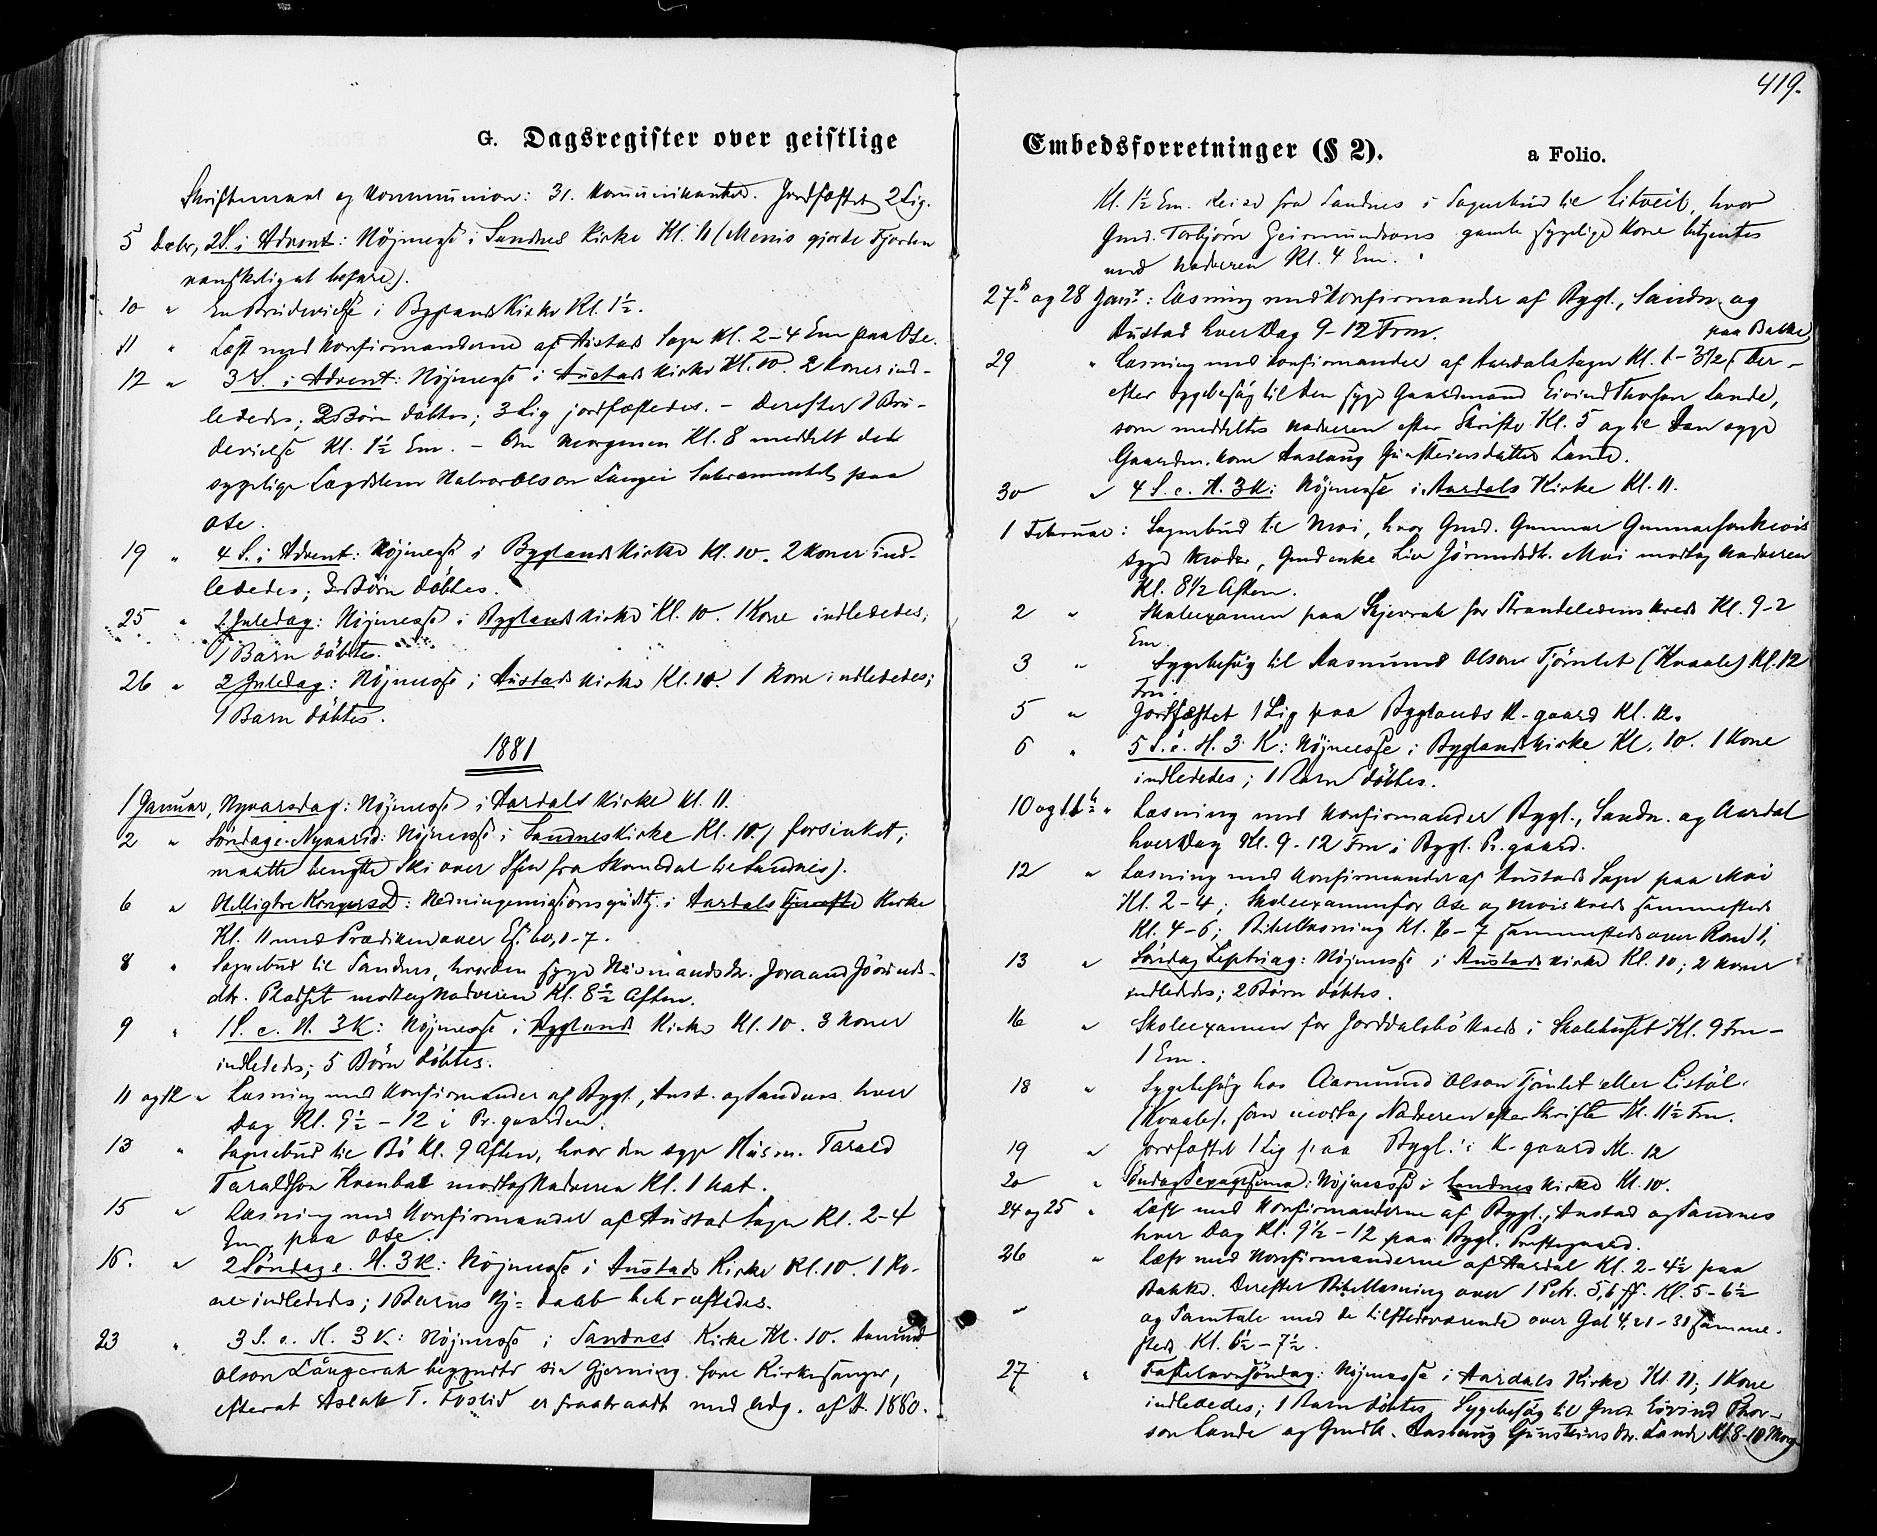 419.
G. Dagsregister over geistlige
Skriftemaal og Kommunion: 31. Kommunikanter. Jordfæstet 2 Lig.
5 Decbr, 2 S. i Advent: Höjmesse i Sandnes Kirke Kl. 11 (Menis gjorde Fjorden
vanskelig at befare).
10 " En Brudevielse i Byglands Kirke Kl. 1½.
11 " Læst med Konfirmanderne af Austads Sogn Kl. 2-4 Em paa Ose.
12 " 3 S. i Advent: Höjmesse i Austads Kirke Kl. 10. 2 Koner ind-
lededes; 2 Börn döbtes; 3 Lig jordfæstedes. - Derefter 1 Bru-
devielse Kl. 1½ Em. - Om Morgenen Kl. 8 meddelt det
sygelige Lægdslem Halvor Olson Langei Sakramentet paa
Ose.
19 " 4 S. i Advent: Höjmesse i Byglands Kirke Kl. 10. 2 Koner ind-
lededes; Börn döbtes.
25 " 1 Juledag: Höjmesse i Byglands Kirke Kl. 10. 1 Kone indlededes;
1 Barn döbtes.
26 " 2 Juledag: Höjmesse i Austads Kirke Kl. 10. 1 Kone indlededes;
1 Barn döbtes.
1881
1 Januar, Nyaarsdag: Höjmesse i Aardals Kirke Kl. 11.
2 " Söndag e. Nyaarsd: Höjmesse i Sandnes Kirke Kl. 10 forsinket;
maatte benytte Ski over Isen fra Skomedal til Sandnes).
6 " Helligtre Kongersd: Hedningemissionsgudstj. i Aardals Kirke
Kl. 11 med Prædiken over Es. 60, 1-7.
8 " Sognebud til Sandnes, hvor den syge Husmands Joraand Jörunds-
dtr. Pladset modtog Nadveren Kl. 8½ Aften.
9 " 1 S. e. H. 3 K: Höjmesse i Byglands Kirke Kl. 10. 3 Koner
indlededes; 5 Börn döbtes.
11 og 12 " Læsning med Konfirmander af Bygl., Aust. og Sandnes hver
Dag Kl. 9½ - 12 i Pr. gaarden.
13 " Sognebud til Bö Kl. 9 Aften, hvor den syge Husm. Tarald
Taraldson modtog Nadveren Kl. 1 Nat.
15 " Læsning med Konfirmander af Austad Sogn Kl. 2-4
Em. paa Ose.
16. " 2 Söndag e. H. 3 K: Höjmesse i Austads Kirke Kl. 10. 1 Ko-
ne indlededes; 1 Barns Hj= daab bekræftedes.
23 " 3 S. e. H. 3 K.: Höjmesse i Sandnes Kirke Kl. 10. Aamund
Olson Langerak begyndte sin Gjerning som Kirkesanger,
efterat Aslak T. Foslid er fratraadt med Udg. af A. 1880.
Embedsforretninger (§ 2).
a Folio.
Kl. 1½ Em. Reise fra Sandnes i Sognebud til Litveit, hvor
Gmd. Torbjörn Geirmundsons gamle sygelige Kone betjentes
med Nadveren Kl. 4 Em.
27 og 28 Janr: Læsning med Konfirmander af Bygl., Sandn. og
Austad hver Dag 9-12 Frm.
paa Bakke
29 " Læsning med Konfirmander af Aardals Sogn Kl. 1-3½. Der-
efter Sygebesög til den syge Gaardmand Eivind Thorson Lande,
som meddeltes Nadveren efter Skrifte Kl. 5 og til den syge
Gaardm. kone Aaslaug Gunsteinsdatter Lande.
30 " 4 S. e. H. 3 K: Höjmesse i Aardals Kirke Kl. 11.
1 Februar: Sognebud til Moi, hvor Gmd. Gunnar Gunnarson Mois
syge Moder, Gmd enke Liv Jörundsdt. Moi modtog Nadveren
Kl. 8½ Aften.
2 " Skoleexamen paa Skjevrak for Strandeledens Kreds Kl. 9-2
Em.
3 " Sygebesög til Aasmund Olson Tjönlet (Kvaale) Kl. 12
Frm.
5 " Jordfæstet 1 Lig paa Byglands K-gaard Kl. 12.
6 " 5 S. e. H. 3 K: Höjmesse i Byglands Kirke Kl. 10. 1 Kone
indlededes; 1 Barn döbtes.
10 og 11 " Læsning med Konfirmander Bygl., Sandn. og Aardal
hver Dag Kl. 9-12 Frm i Bygl. Pr. gaard.
12 " Læsning med Konfirmander af Austads Sogn paa Moi
Kl. 2-4; Skoleexamen for Ose og Mois Kreds sammesteds
Kl. 4-6; Bibellæsning Kl. 6-7 sammesteds over Rom 1,
13 " Söndag Septuag: Höjmesse i Austads Kirke Kl. 10; 2 Koner
indlededes; 2 Börn döbtes.
16 " Skoleexamen for Jorddalsbö Kreds i Skolehuset Kl. 9 Frm -
1 Em.
18 " Sygebesög hos Aasmund Olson Tjönlet eller Listöl
(Kvaale), som modtog Nadveren efter Skrifte Kl. 11½ Frm.
19 " Jordfæstet 1 Lig paa Bygl. K-gaard Kl. 12
20 " Söndag Sexagesima: Höjmesse i Sandnes Kirke Kl. 10.
24 og 25 " Læst med Konfirmanderne af Bygl., Austad og Sandnes
hver Dag Kl. 9½-12 paa Bygl. Prestegaard.
26 " Læst med Konfirmanderne af Aardal Kl. 2-4½ paa
Bakke. Derefter Bibellæsning over 1 Pet. 5,6 ff. Kl. 5-6½
" og Samtale med de tilstedeværende over Gal 4, 21-31 samme-
steds Kl. 6½-7½.
27 " Fastelavnssöndag: Höjmesse i Aardals Kirke Kl. 11; 1 Kone
indlededes; 1 Barn döbtes. Sygebesög til Gmd. Eivind Thor-
son Lande og Gmdk. Aaslaug Gunsteins dtr. Lande Kl. 8-10 Morg.